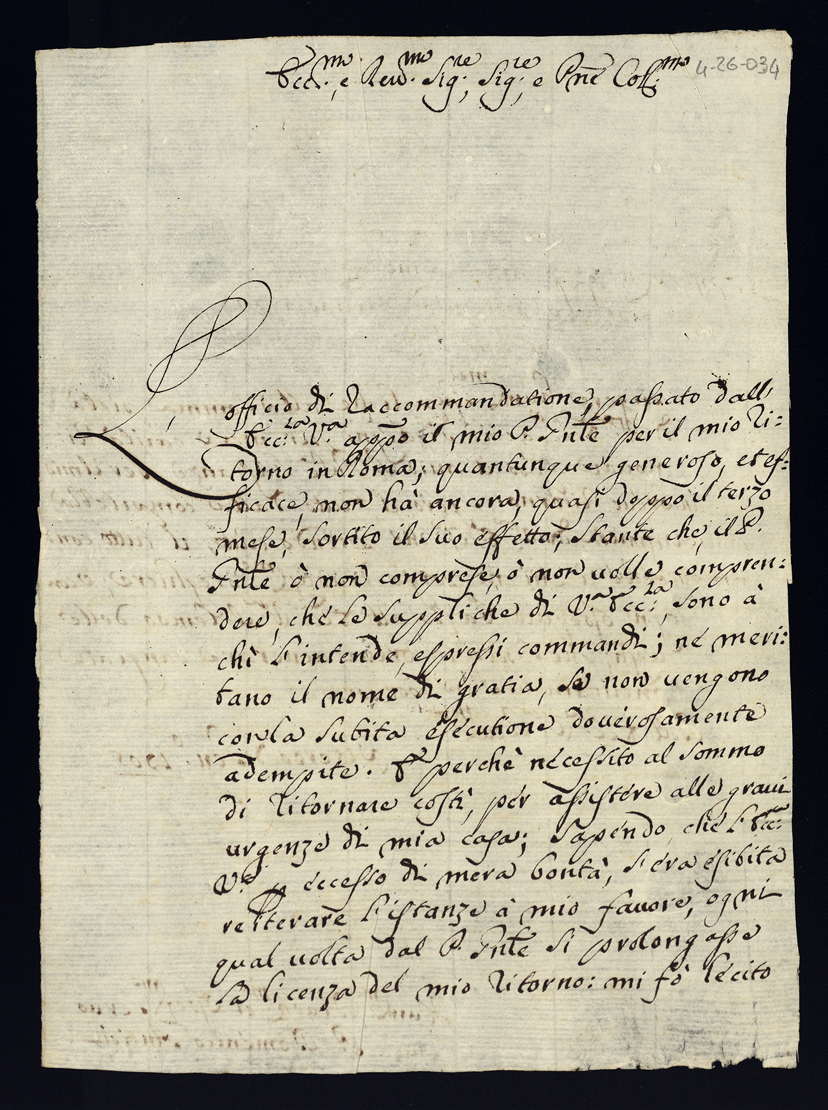 Ecc.mo, e Reu.mo Sig.re, Sig.re, e Pne Coll.mo
4-26-034
L'officio di Raccommandatione, passato dall'
Ecc.za V.ra appõ il mio P. Pnle per il mio ri:
torno in Roma; quantunque generoso, et ef:
ficace, non hà ancora, quasi doppo il terzo
mese, sortito il suo effetto; stante che, il P.
Pnle ò non comprese, ò non volle compren:
dere, che le suppliche di V.a Ecc.za, sono à
chi l'intende, espressi commandi; ne meri:
tano il nome di gratia, se non vengono
con la subita esecutione doverosamente
adempite. E perchè necessito al sommo
di ritornare costì, per assistere alle graui
urgenze di mia casa; sapendo, che l'Ecc.za
V.ra per eccesso di mera bontà, s'era esibita
reiterare l'istanze à mio fauore, ogni
qual volta dal P. Pnle si prolongasse
la licenza del mio ritorno: mi fò lecito